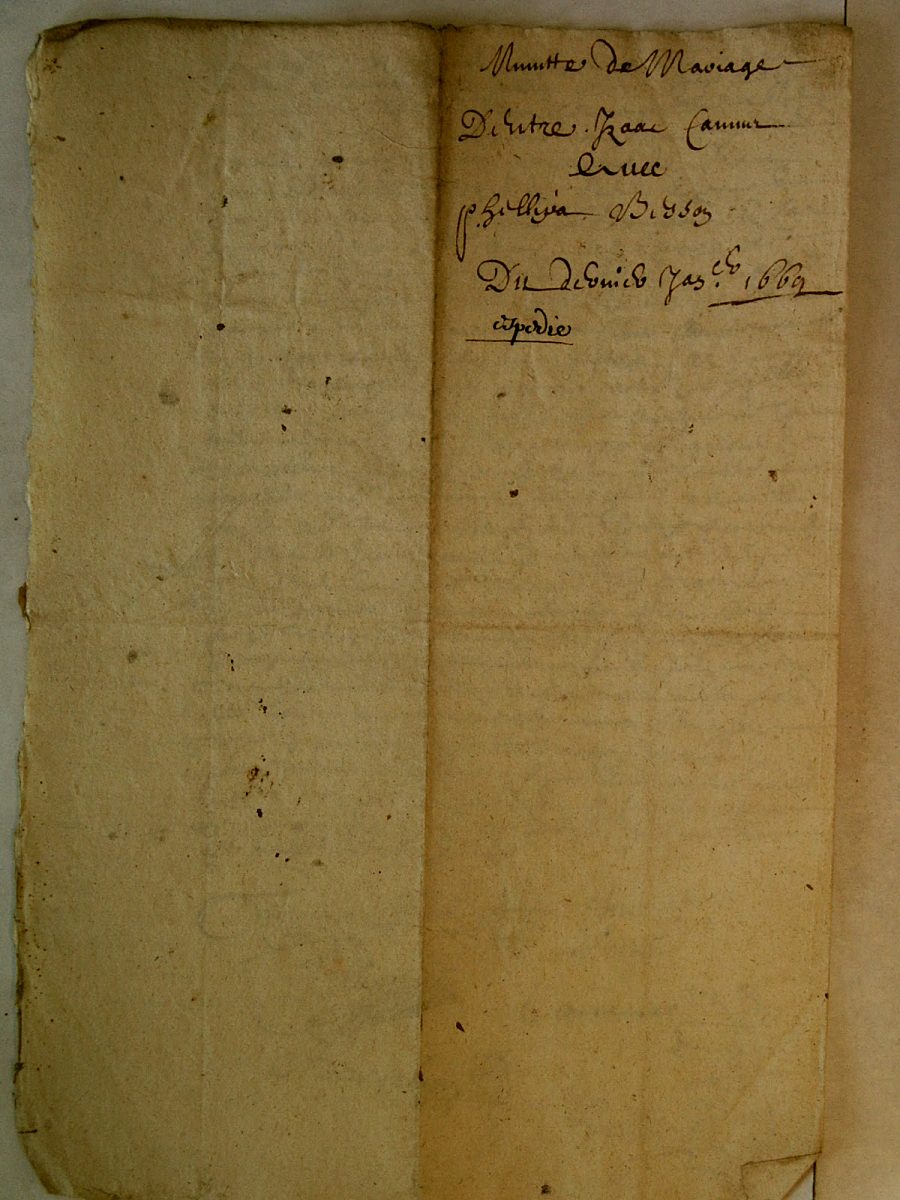 Minutte de Mariage
Dentre Izaac Camus
Avec
phellipa Bisson
Du dernier Jan.er 1669
expedie